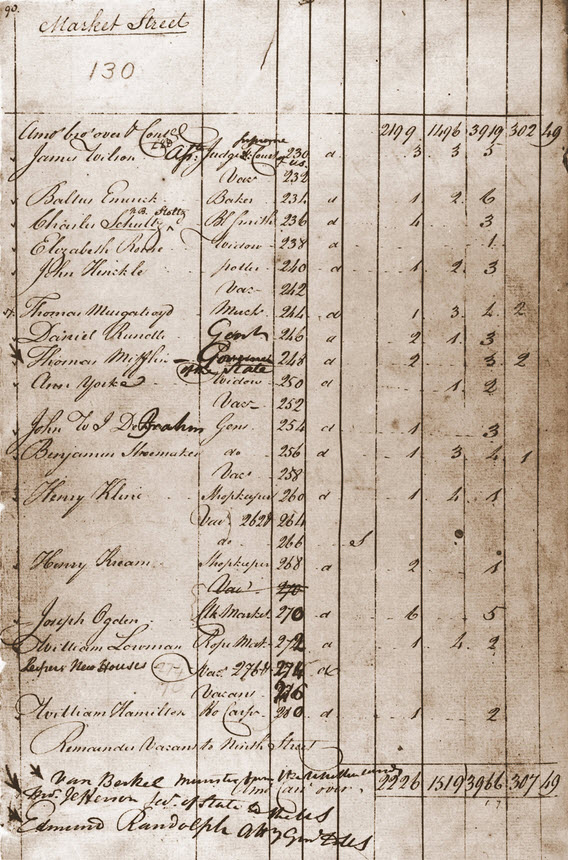 90.
Market Street
130
Amo't bro't over & Consd 2199 1496 3919 302 49
James Wilson Ass. Judge Supreme Court of U.S. 230 d 3 3 5
Vac 232
Baltus Emrick Baker 234 d 1 2 6
Charles Schultz Bl Smith 236 d 4 3
Elizabeth Widow 238 d 1
John Hinckle potter 240 d 1 2 3
Vac 242
Thomas Murgatroyd Mercht 244 d 1 3 4 2
Daniel Rundle Gent 246 d 2 1 3
Thomas Mifflin Governor of the State 248 d 2 3 2
Ann Yorke Widow 250 d 1 2
Vac 252
John W I De Brahm Gent 254 d 1 3
Benjamin Shoemaker do 256 d 1 3 4 1
Vac 258
Henry Kline Shopkeeper 260 d 1 4 1
Vac 262 & 264
do 266 S
Henry Shopkeeper 268 d 2 1
Vac 270
Joseph Ogden Clk Market 270 d 6 5
William Lowman Rope Mak 272 d 1 4 2
New Houses Vac 276 & 274 d
Vacant
William Hamilton Ho Carpr 280 d 1 2
Remainder Vacant to Ninth Street
Van Berkel minister from the
Amt over 2226 1519 3966 307 49
Jefferson Sec. of State to the US
Edmund Randolph Atty Genl US